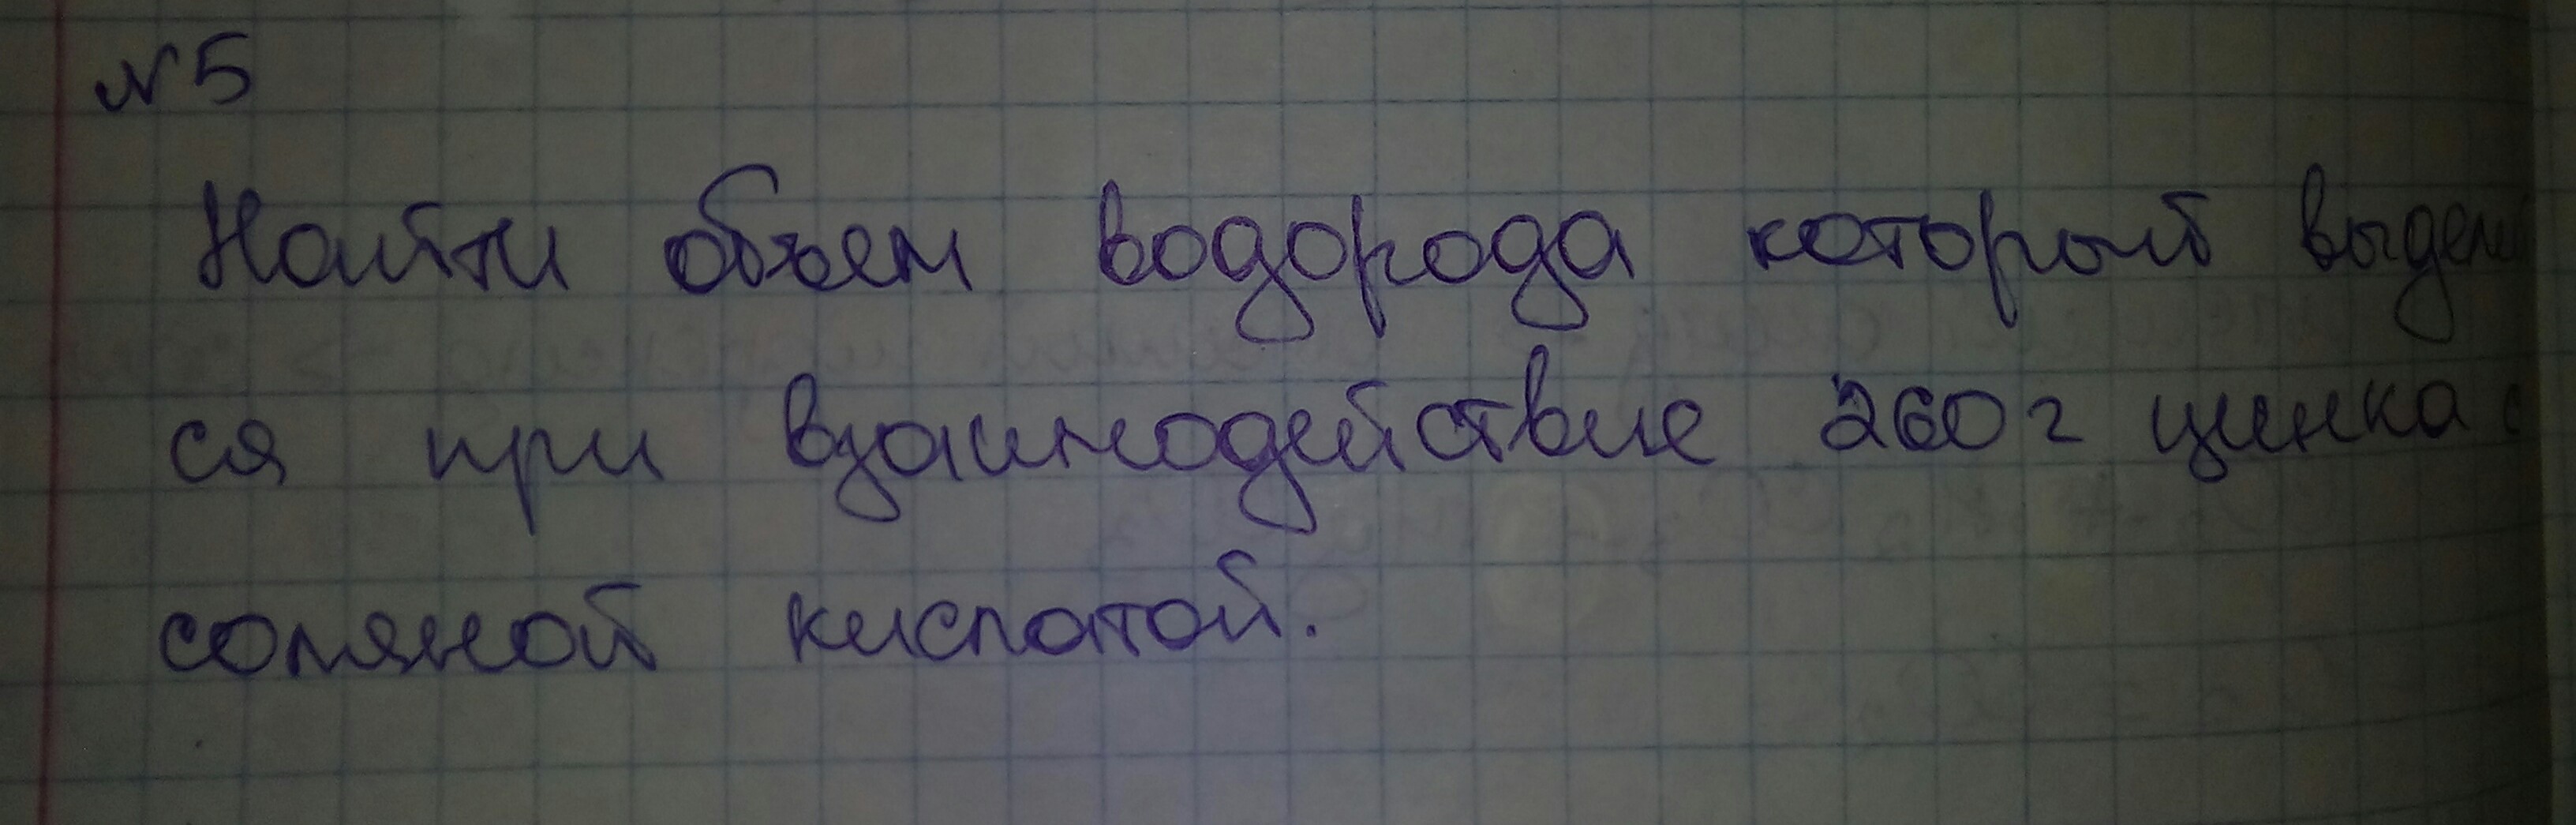 №5
Найти объем водорода который выдели
ся при взаимодействие 260г цинка с
соляной кислотой.